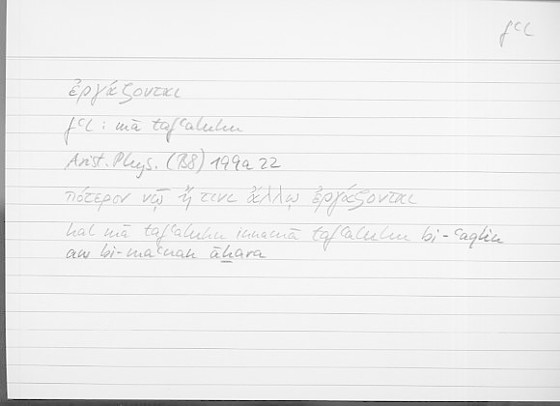 fʿl
ἐργάζονται
fʿl : mā tafʿaluhu
Arist. Phys. (B8) 199a22
πότερον νῷ ἤ τινι ἄλλῳ ἐργάζονται
hal mā tafʿaluhu innamā tafʿaluhu bi-ʿaqlin
aw bi-maʿnan āḫara